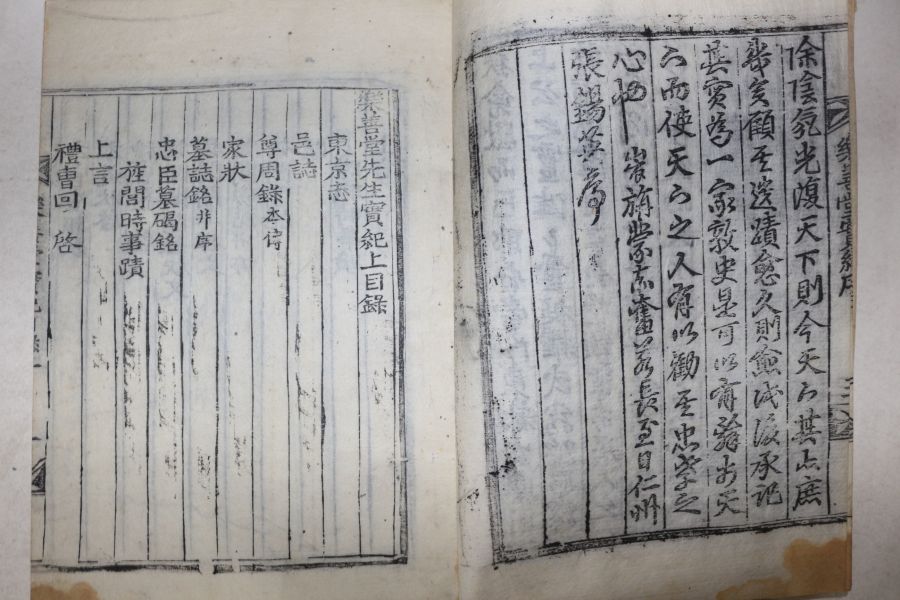 除陰氛光復天下則今天下其亾庶
幾矣顧玆遺蹟愈久則愈泯後承記
其實爲一家敦史是可以有辭於天
下而使天下之人有以勸玆忠之
心也 歲旃蒙赤奮若長至日仁州
張錫英
樂善堂實紀序
樂善堂先生實紀上目錄
東京志
邑誌
尊周錄本傳
家狀
墓誌銘并序
忠臣墓碣銘
旌閭時事蹟
上言
禮曹回啓